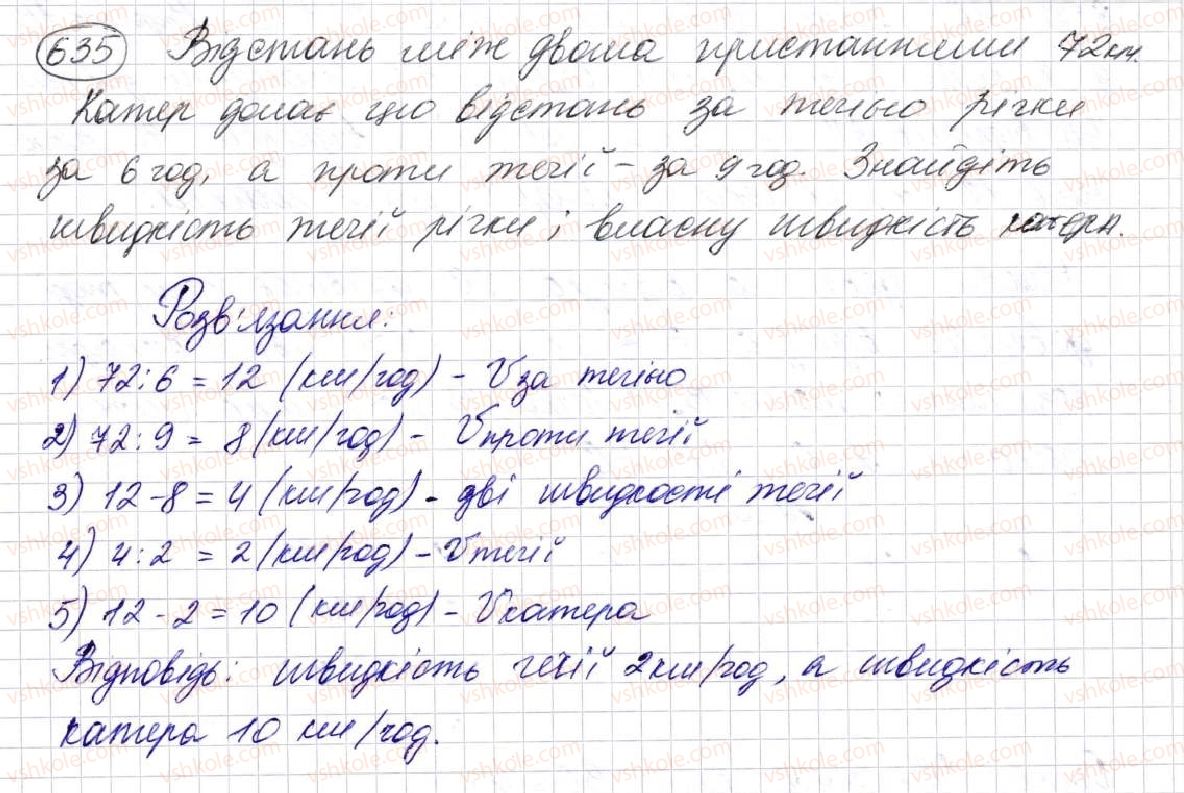 635 Відстань між двома пристанями 72 км.
Катер долає цю відстань за течією річки
за 6 год, а проти течії - за 9 год. Знайдіть
швидкість течії річки і власну швидкість катера.
Розв'язання:
1) 72 : 6 = 12 (км/год) - V за течією
2) 72 : 9 = 8 (км/год) - V проти течії
3) 12 - 8 = 4 (км/год) - дві швидкості течії
4) 4 : 2 = 2 (км/год) - V течії
5) 12 - 2 = 10 (км/год) - V катера
Відповідь: швидкість течії 2 км/год, а швидкість
катера 10 км/год.